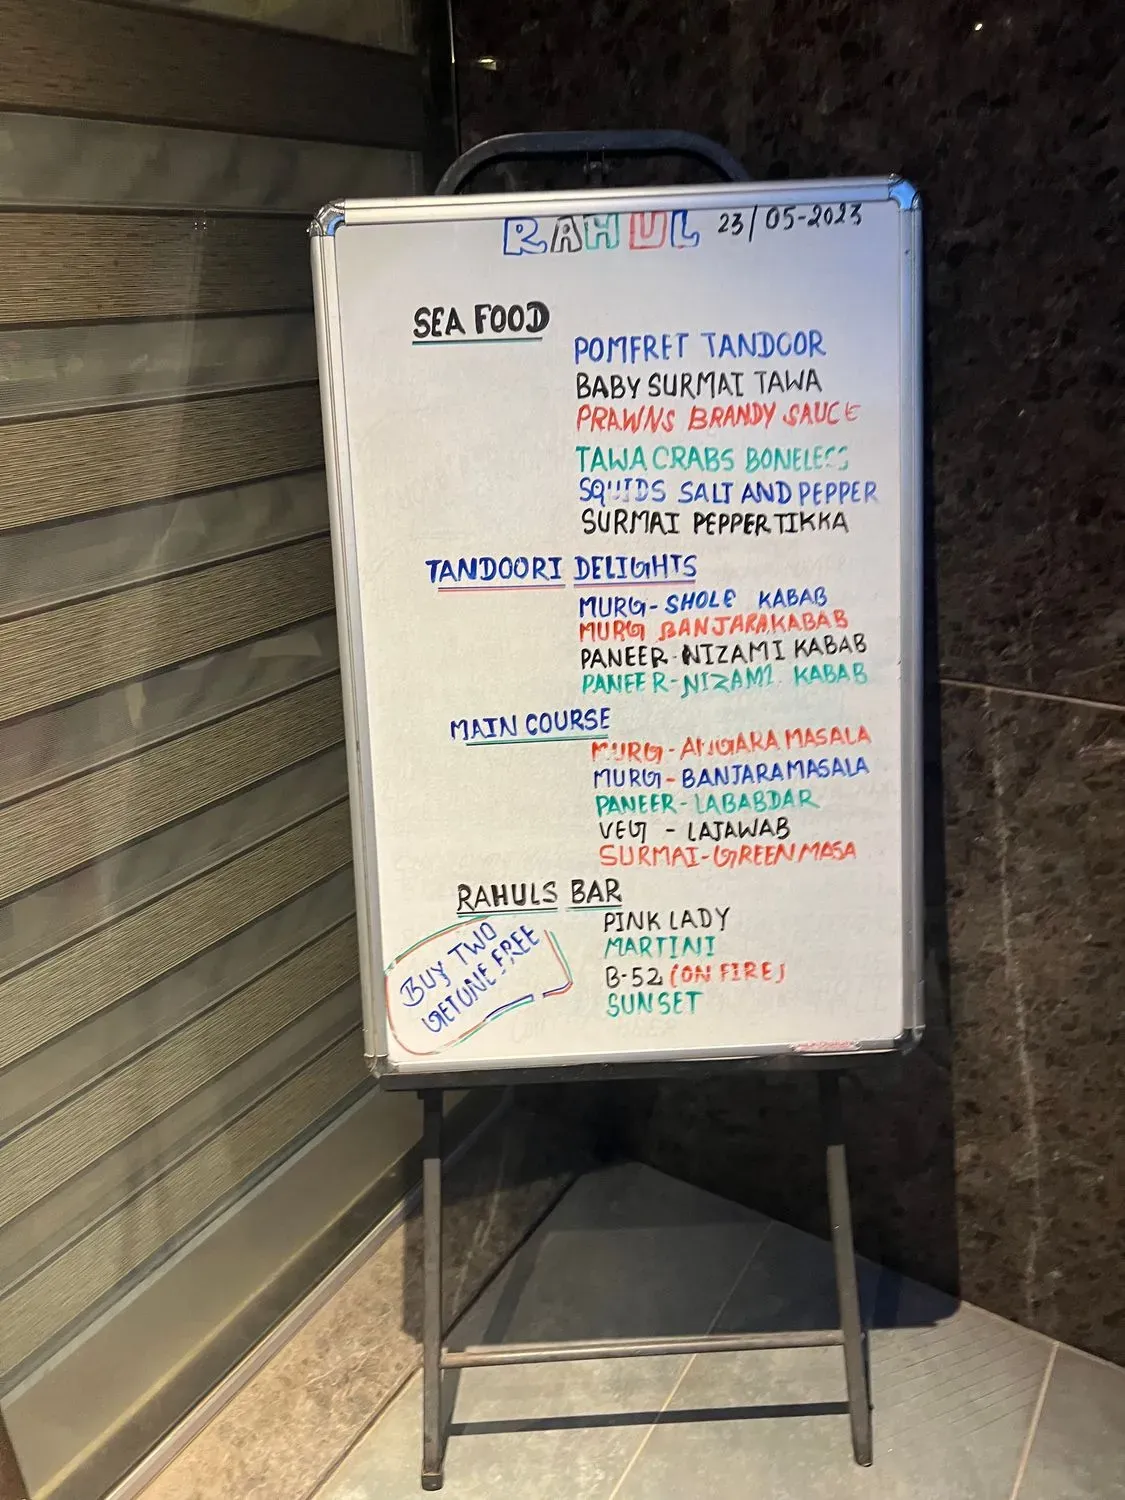 RAHUL 23/05-2023
SEA FOOD
POMFRET TANDOOR
BABY SURMAI TAWA
PRAWNS BRANDY SAUCE
TAWA CRABS BONELESS
SQUIDS SALT AND PEPPER
SURMAI PEPPER TIKKA
TANDOORI DELIGHTS
MURG-SHOLE KABAB
MURG BANJARA KABAB
PANEER-NIZAMI KABAB
PANEER-NIZAMI KABAB
MAIN COURSE
MURG-ANGARA MASALA
MURG-BANJARA MASALA
PANEER-LABABDAR
VEG - LAJAWAB
SURMAI-GREEN MASA
RAHULS BAR
PINK LADY
MARTINI
B-52 (ON FIRE)
SUNSET
BUY TWO
GET ONE FREE